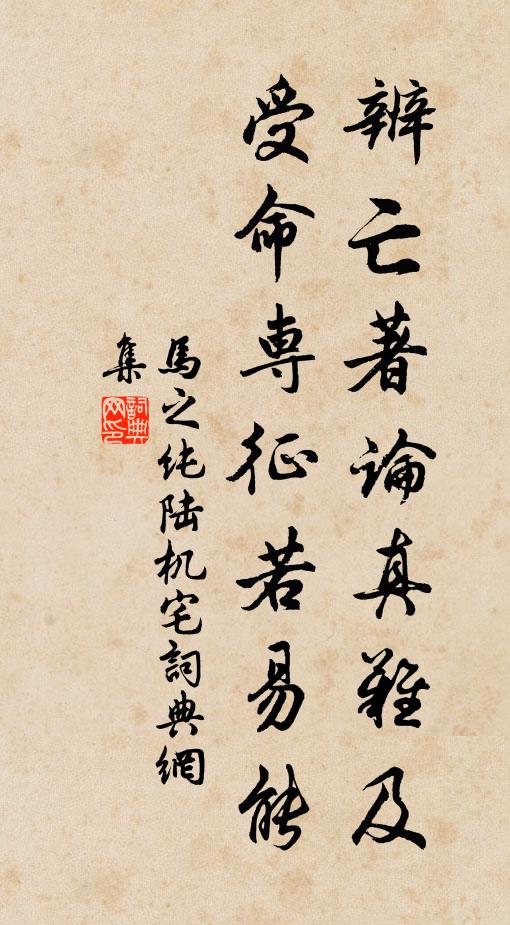 辨亡著論真難及
受命専征若易能
馬之純陆机宅詞典網
集
詞典
网印